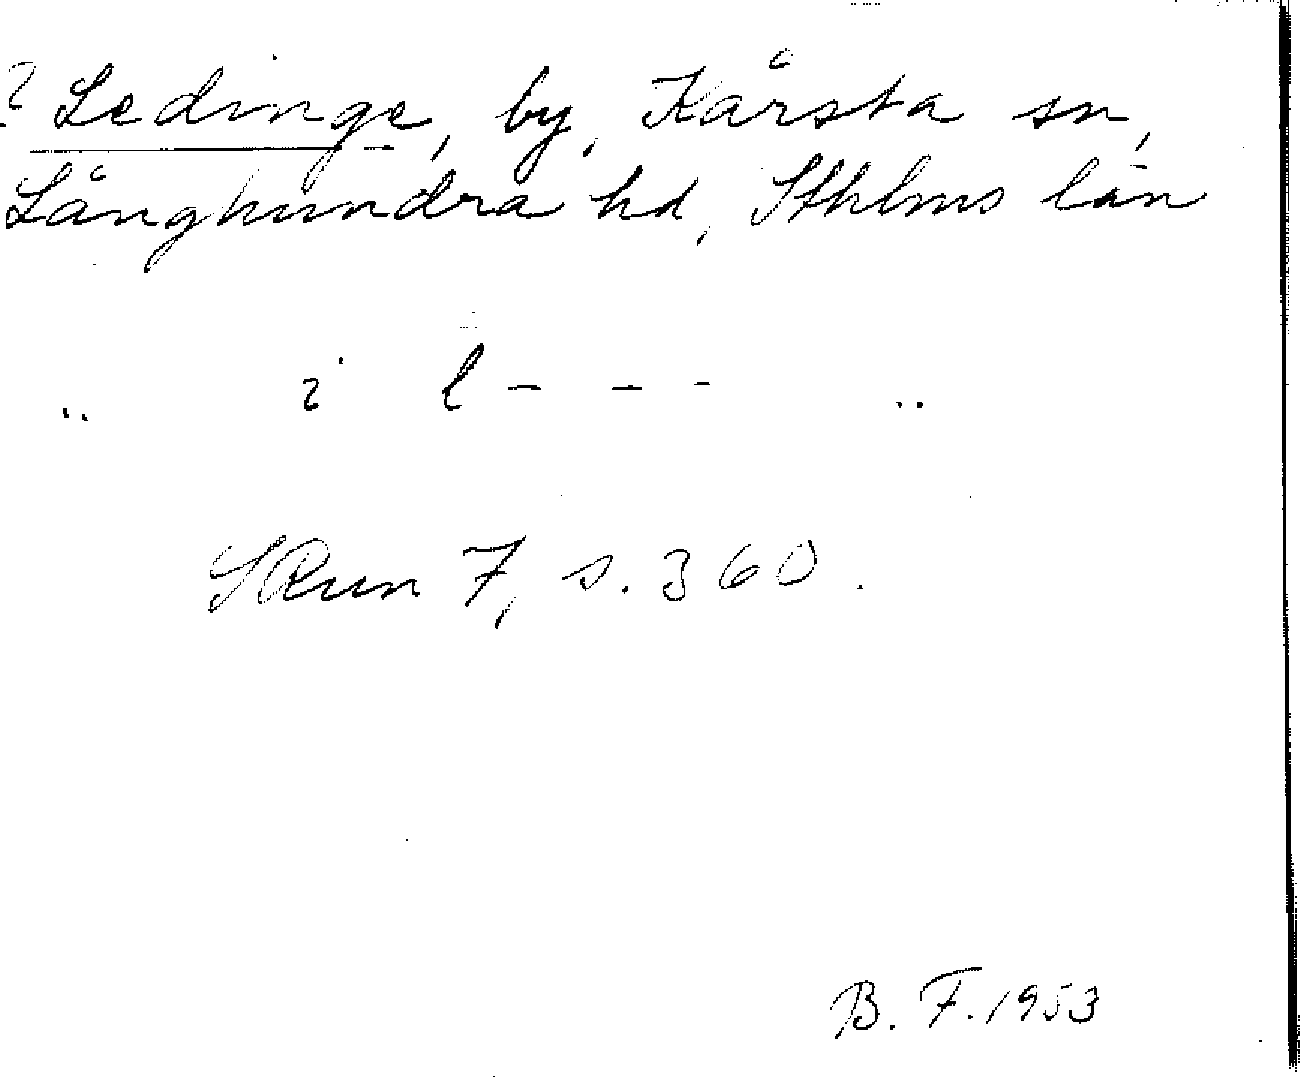 ? Ledinge, by, Kårsta sn,
Långhundra hd, Sthlms län
.. i l - - - ..
SRun 7, s. 360.
B. F. 1953